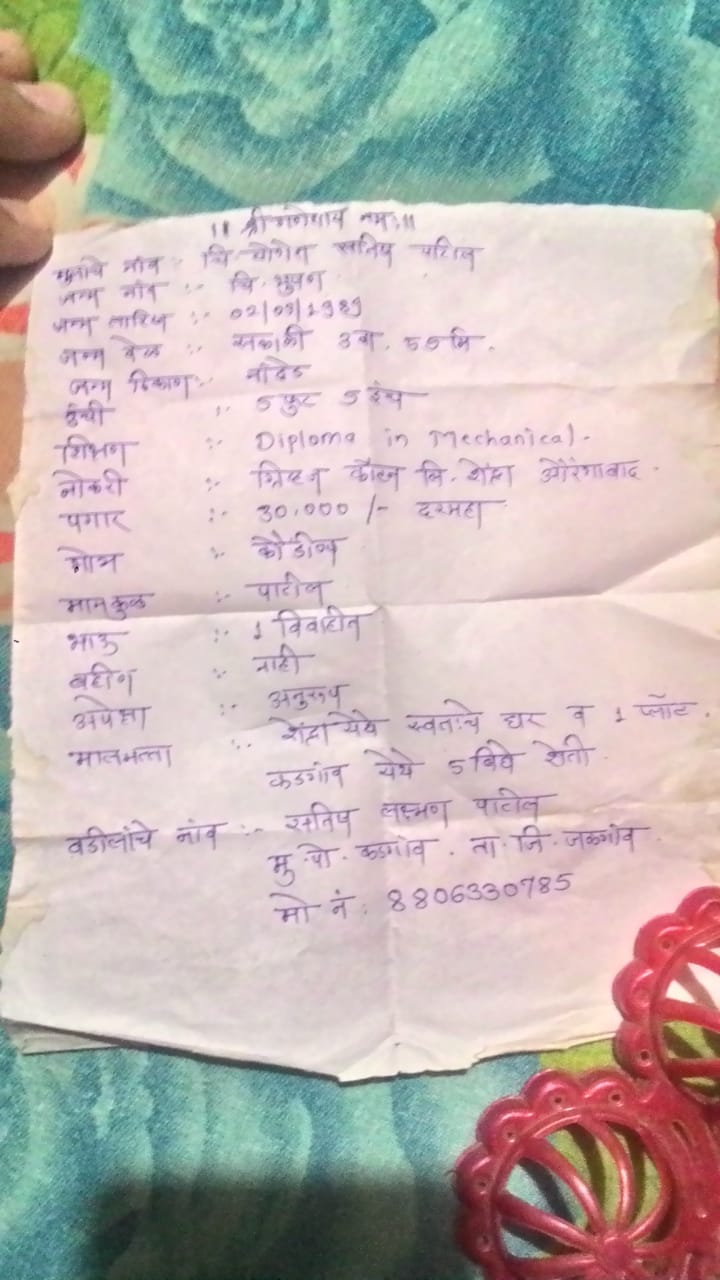 ॥ श्री गणेशाय नमः॥
मुलाचे नांव :- चि. योगेश सतिष पाटिल
जन्म नांव :- चि. भुषण
जन्म तारिख :- 02/09/1989
जन्म वेळ :- सकाळी 3 वा. 59 मि.
जन्म ठिकाण :- नांदेड
उंची :- 5 फुट 5 इंच
शिक्षण :- Diploma in Mechanical.
नोकरी :- लि. शेंद्रा औरंगाबाद.
पगार :- 30.000 /- दरमहा
गोत्र :- कौडीण्य
मानकुळ :- पाटील
भाऊ :- 1 विवाहीत
बहीण :- नाही
अपेक्षा :- अनुरूप
मालमत्ता :- शेंद्रा येथे स्वतःचे घर व 1 प्लॉट.
कडगांव येथे 5 बिघे शेती
वडीलांचे नांव :- सतिष लक्ष्मण पाटील
मु. पो. कडगांव. ता. जि. जळगांव.
मो नं : 8806330785